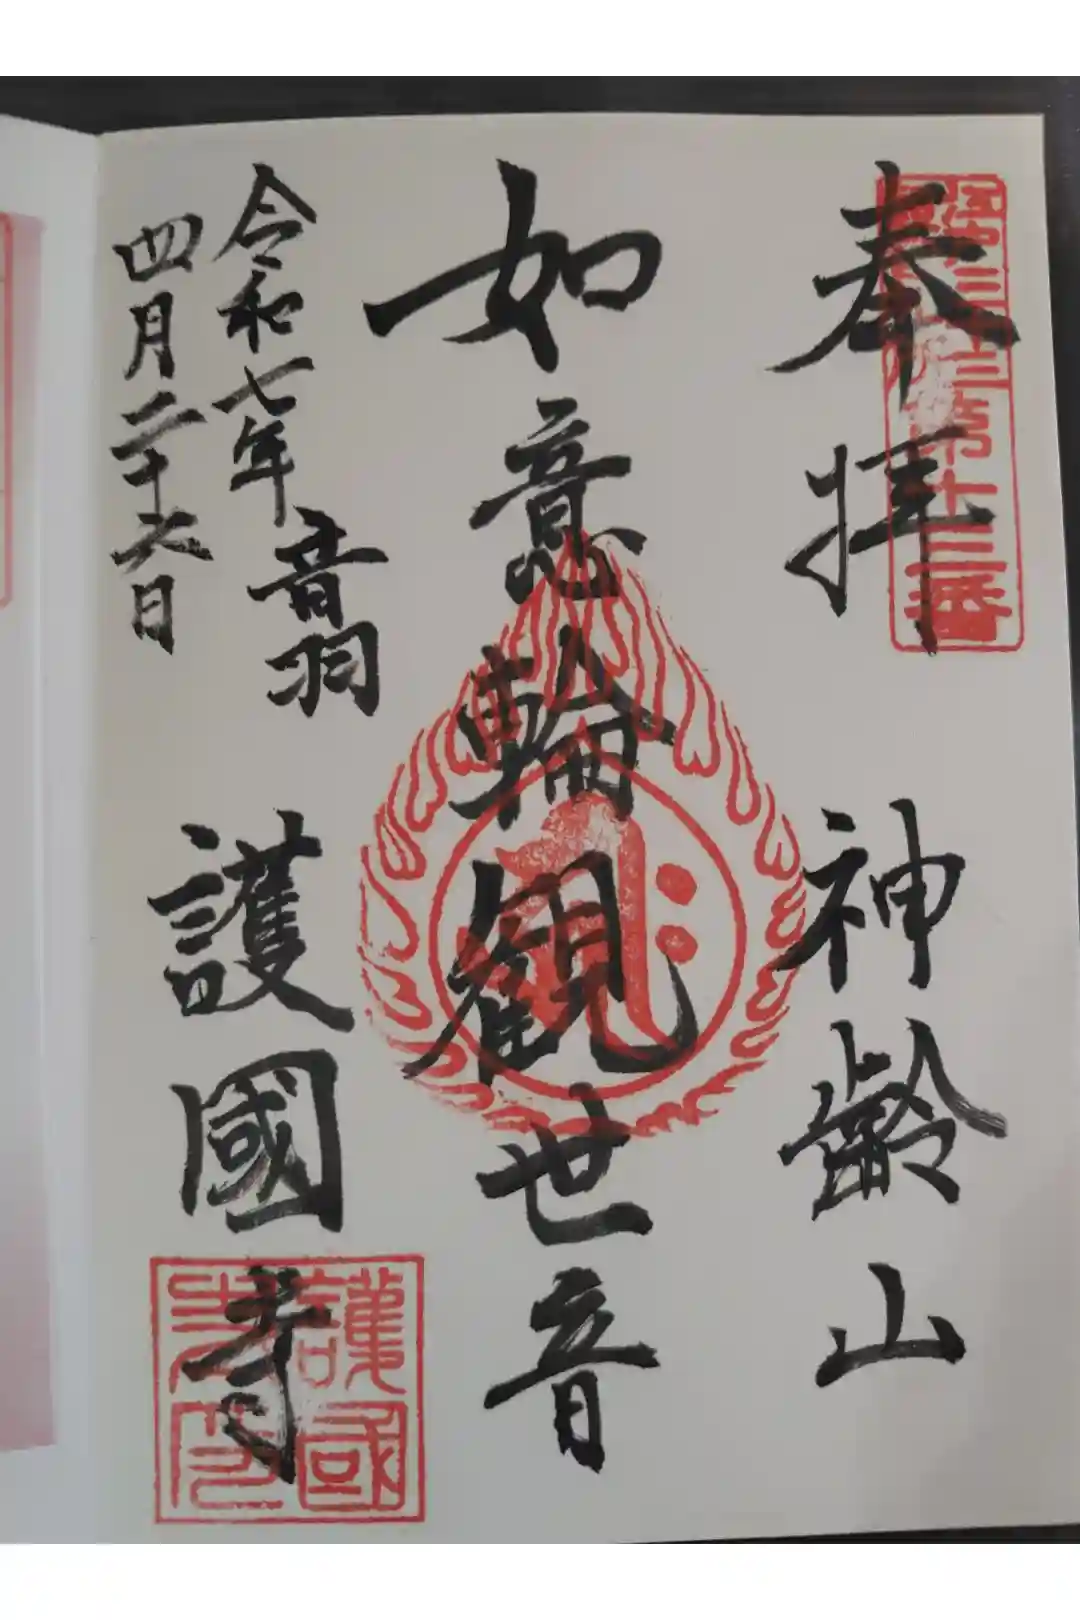 奉拝
神齢山
如意輪観世音
音羽
護國寺
令和七年
四月二十六日
護國寺印